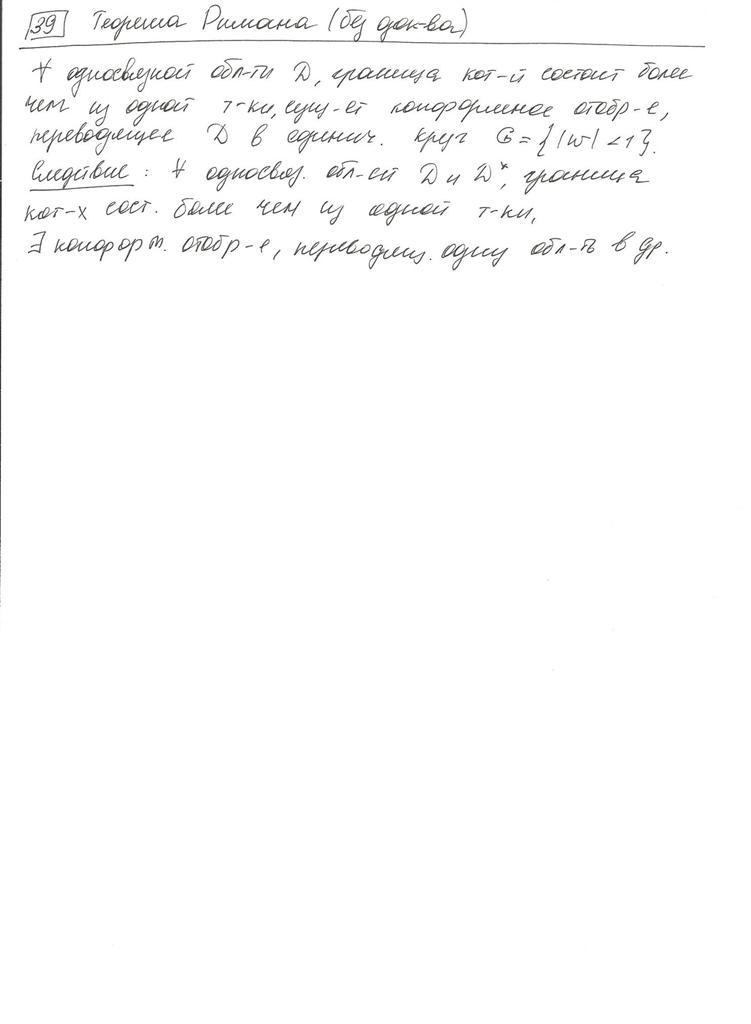 39 Теорема Римана (без док-ва)
∀ односвязной обл-ти D, граница кот-й состоит более
чем из одной т-ки, сущ-ет конформное отобр-е,
переводящее D в единич. круг G = {|w| < 1}.
Следствие: ∀ односвяз. обл-ей D и D*, граница
кот-х сост. более чем из одной т-ки,
∃ конформ. отобр-е, переводящ. одну обл-ть в др.